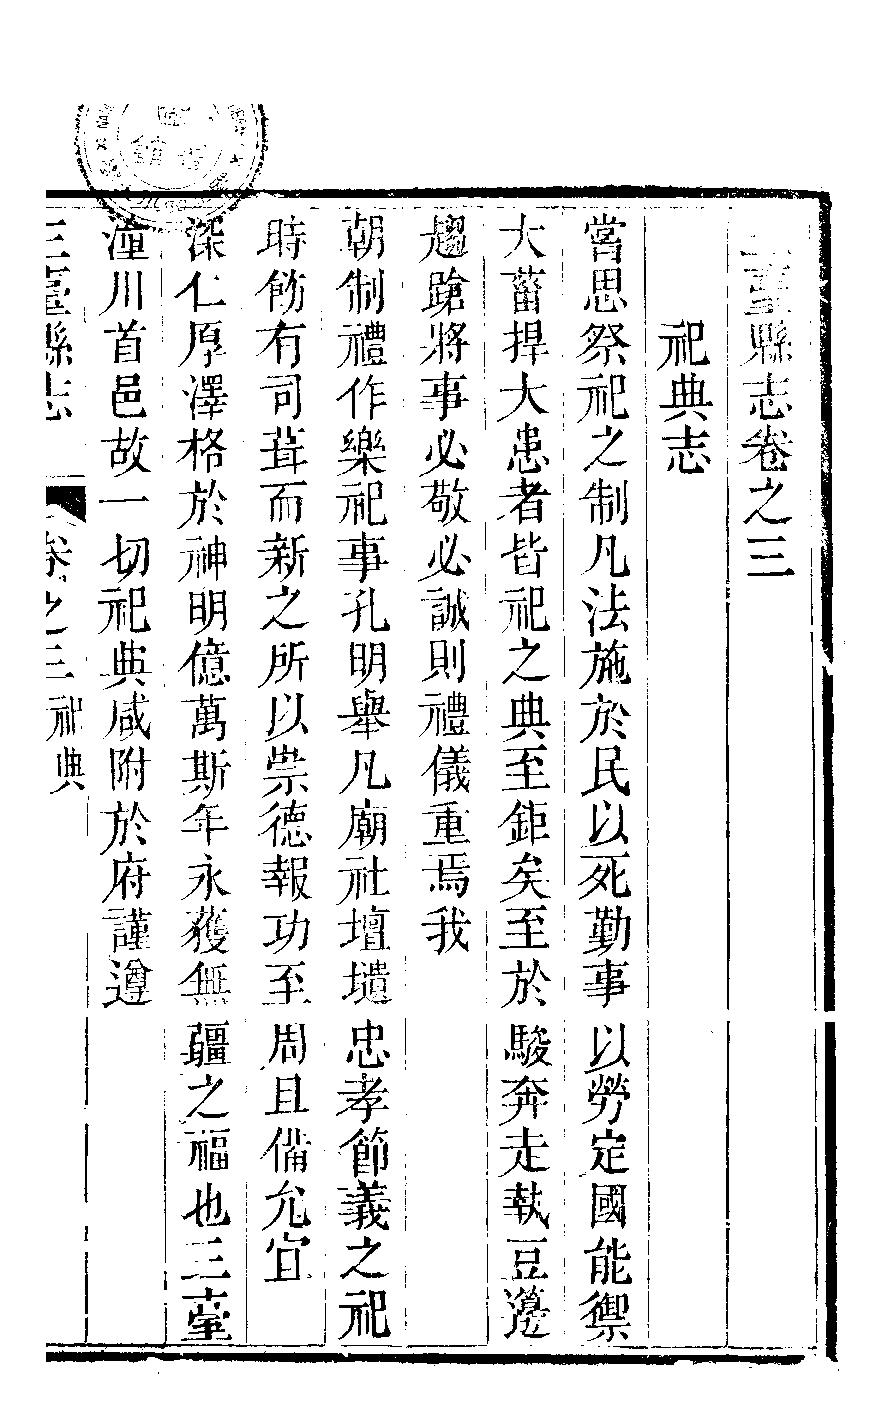 三臺縣志卷之三
祀典志
嘗思祭祀之制凡法施於民以死勤事以勞定國能禦
大菑捍大患者皆祀之典至鉅矣至於駿奔走執豆籩
趨蹌將事必敬必誠則禮儀重焉我
朝制禮作樂祀事孔明舉凡廟社壇壝忠孝節義之祀
時飭有司葺而新之所以崇德報功至周且備允宜
深仁厚澤格於神明億萬斯年永獲無疆之福也三臺
潼川首邑故一切祀典咸附於府謹遵
三臺縣志 卷之三 祀典